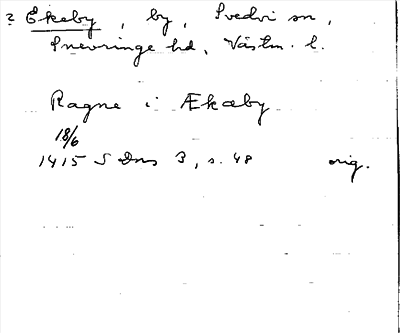 ? Ekeby, by, Svedvi sn,
Snevringe hd, Västm. l.
Ragne i Ækæby
18/6
1415 SDns 3, s. 48 orig.